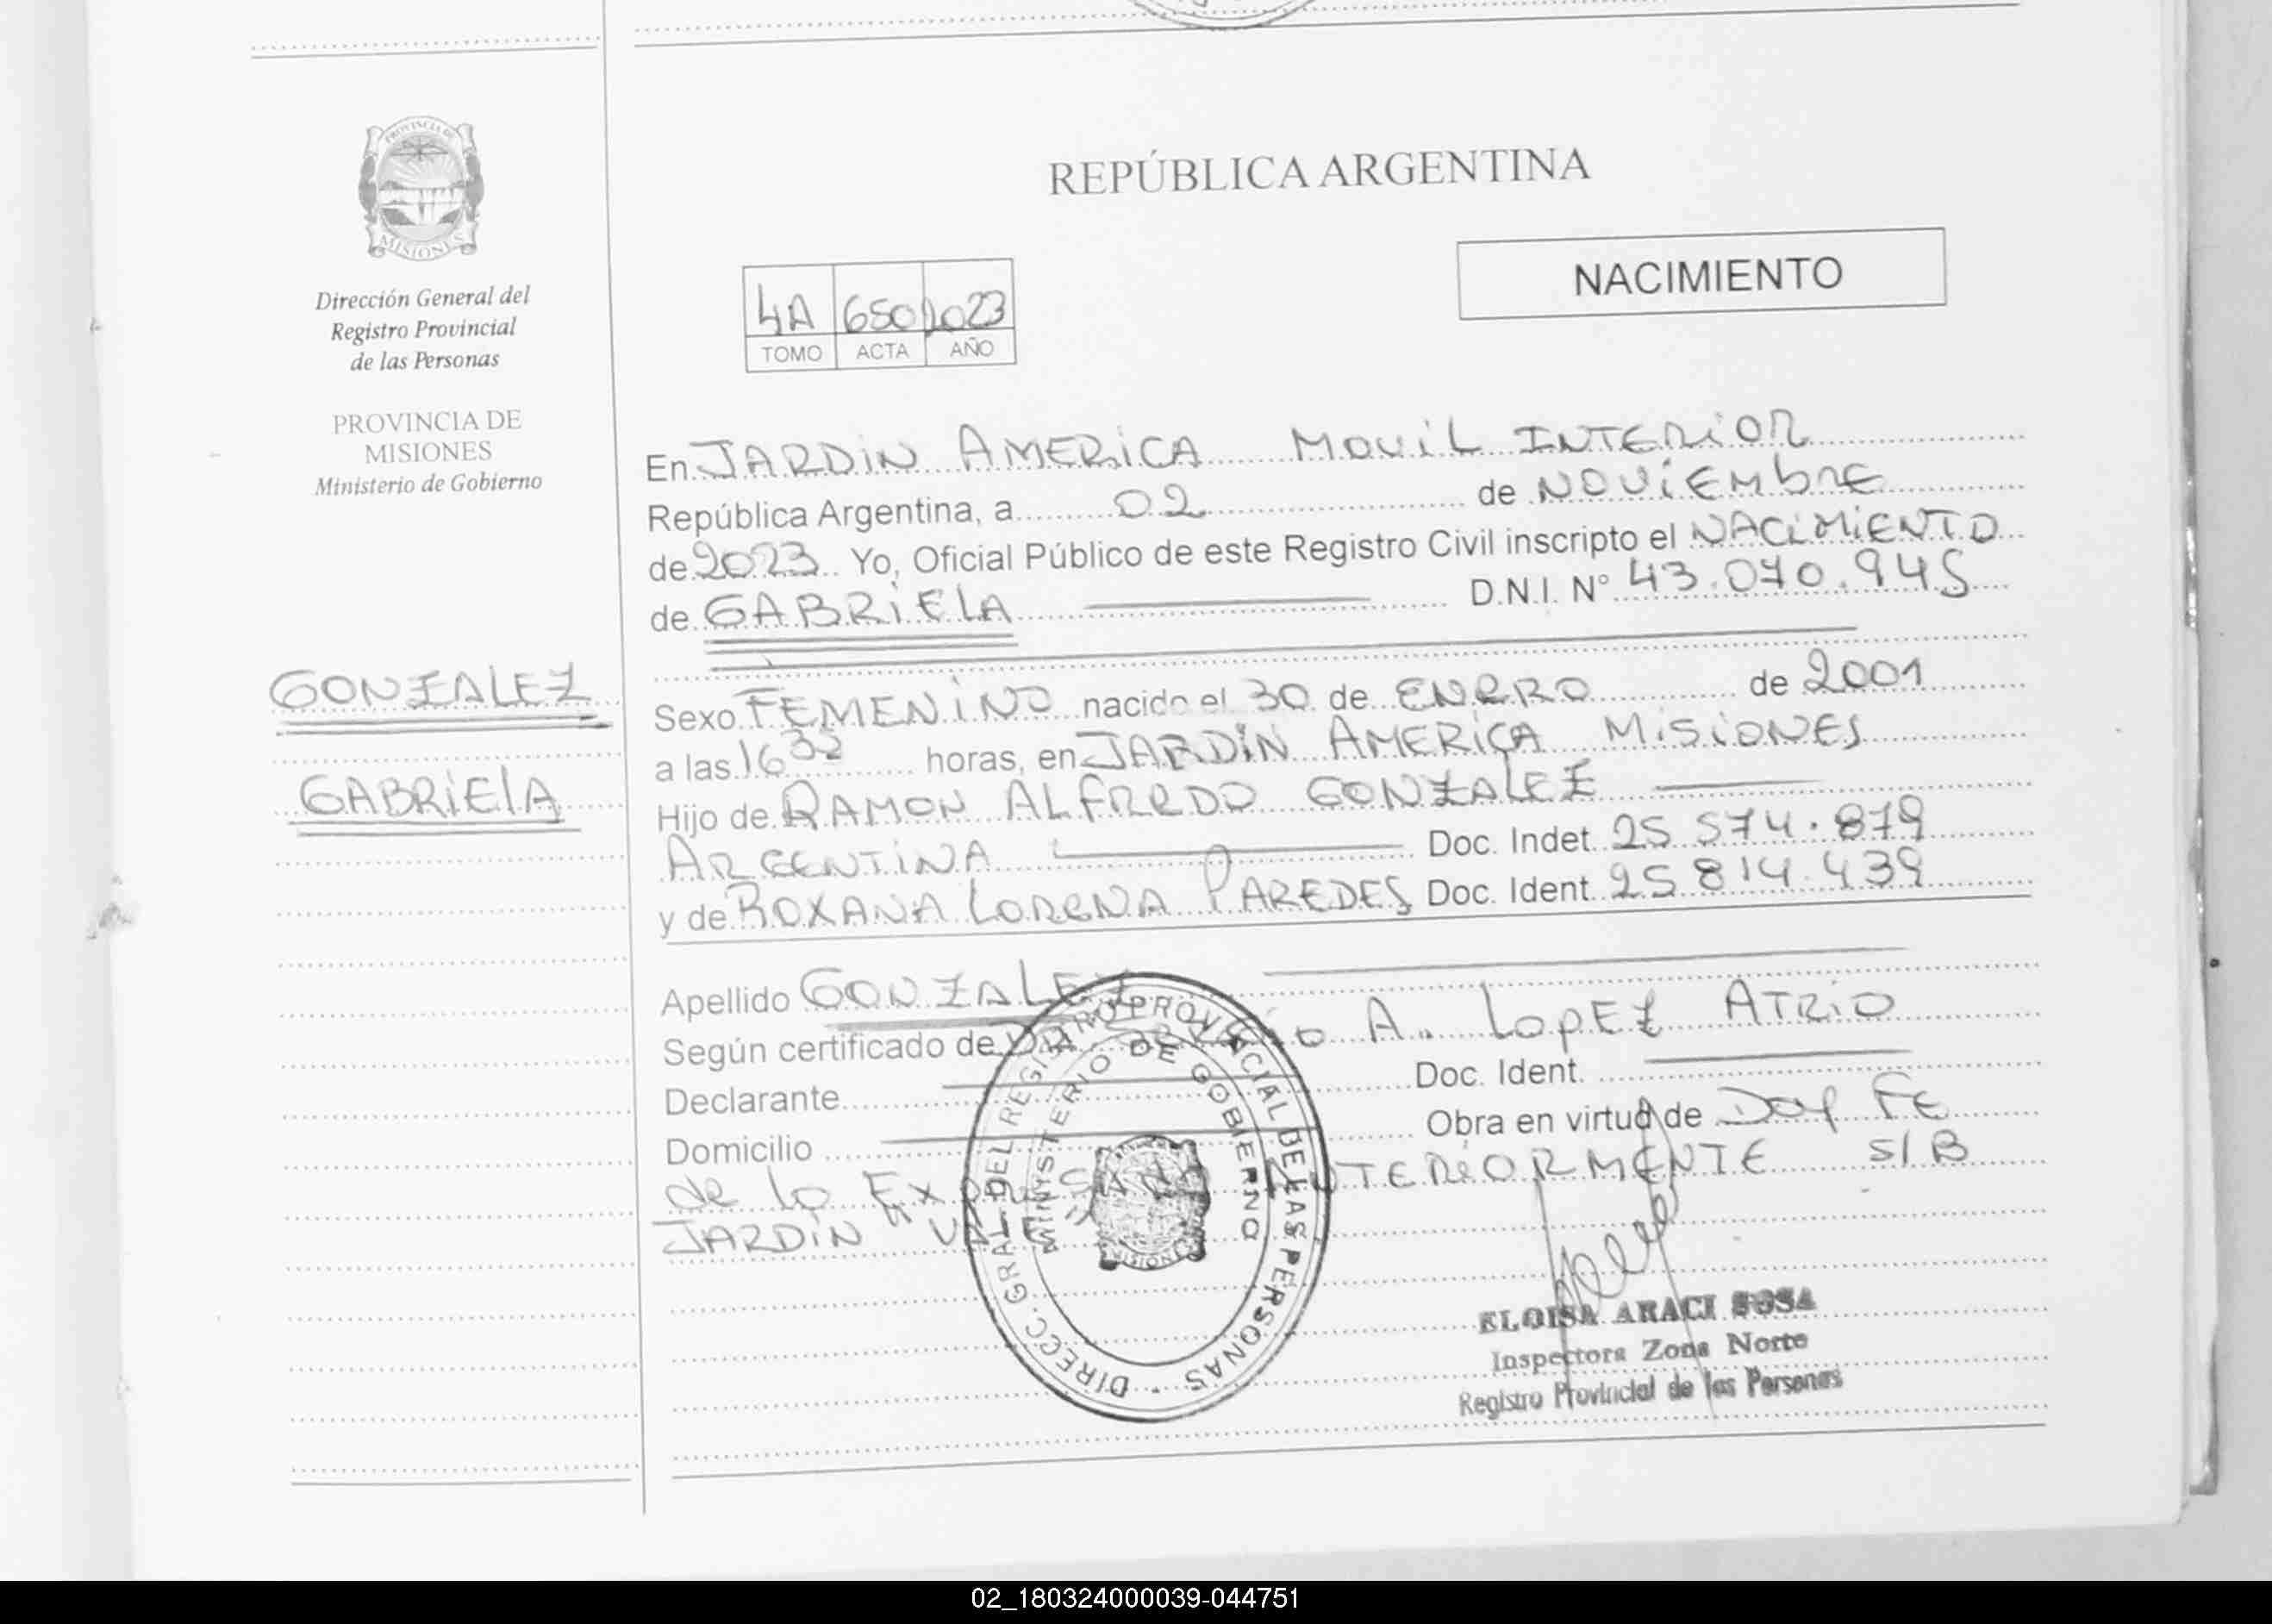 PROVINCIA DE
MISIONES
Dirección General del
Registro Provincial
de las Personas
PROVINCIA DE
MISIONES
Ministerio de Gobierno
GONZALEZ
GABRIELA
REPÚBLICA ARGENTINA
NACIMIENTO
4A 650 2023
TOMO ACTA AÑO
En JARDIN AMERICA MOVIL INTERIOR
República Argentina, a 02 de NOVIEMBRE
de 2023 Yo, Oficial Público de este Registro Civil inscripto el NACIMIENTO
de GABRIELA D.N.I. N° 43.070.945
Sexo FEMENINO nacido el 30 de ENERO de 2001
a las 16 32 horas, en JARDIN AMERICA MISIONES
Hijo de RAMON ALFREDO GONZALEZ
ARGENTINA Doc. Indet. 25 574.879
y de ROXANA LORENA PAREDES Doc. Ident. 25 814.439
Apellido GONZALEZ
Según certificado de A. LOPEZ ATRIO
Declarante Doc. Ident.
Domicilio Obra en virtud de Doy FE
de lo EXPRESADO ANTERIORMENTE S/B
JARDIN "VALE"
DIRECC. GRAL. DEL REGISTRO PROVINCIAL DE LAS PERSONAS
MINISTERIO DE GOBIERNO
MISIONES
ELOISA ARACI SOSA
Inspectora Zona Norte
Registro Provincial de las Personas
02_180324000039-044751